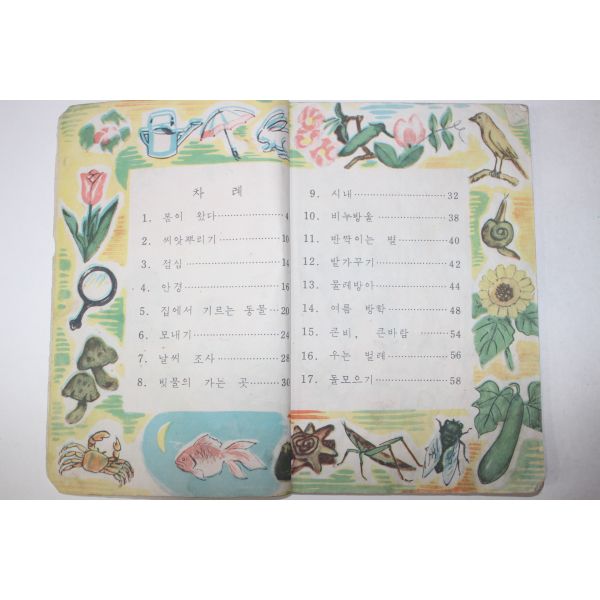 차 례
1. 봄이 왔다 ············ 4
2. 씨앗뿌리기 ············ 10
3. 점심 ············ 14
4. 안경 ············ 16
5. 집에서 기르는 동물 ··· 20
6. 모내기 ············ 24
7. 날씨 조사 ············ 28
8. 빗물의 가는 곳 ········· 30
9. 시내 ············ 32
10. 비누방울 ············ 38
11. 반짝이는 별 ············ 40
12. 밭가꾸기 ············ 42
13. 물레방아 ············ 44
14. 여름 방학 ············ 48
15. 큰비, 큰바람 ············ 54
16. 우는 벌레 ············ 56
17. 돌모으기 ············ 58